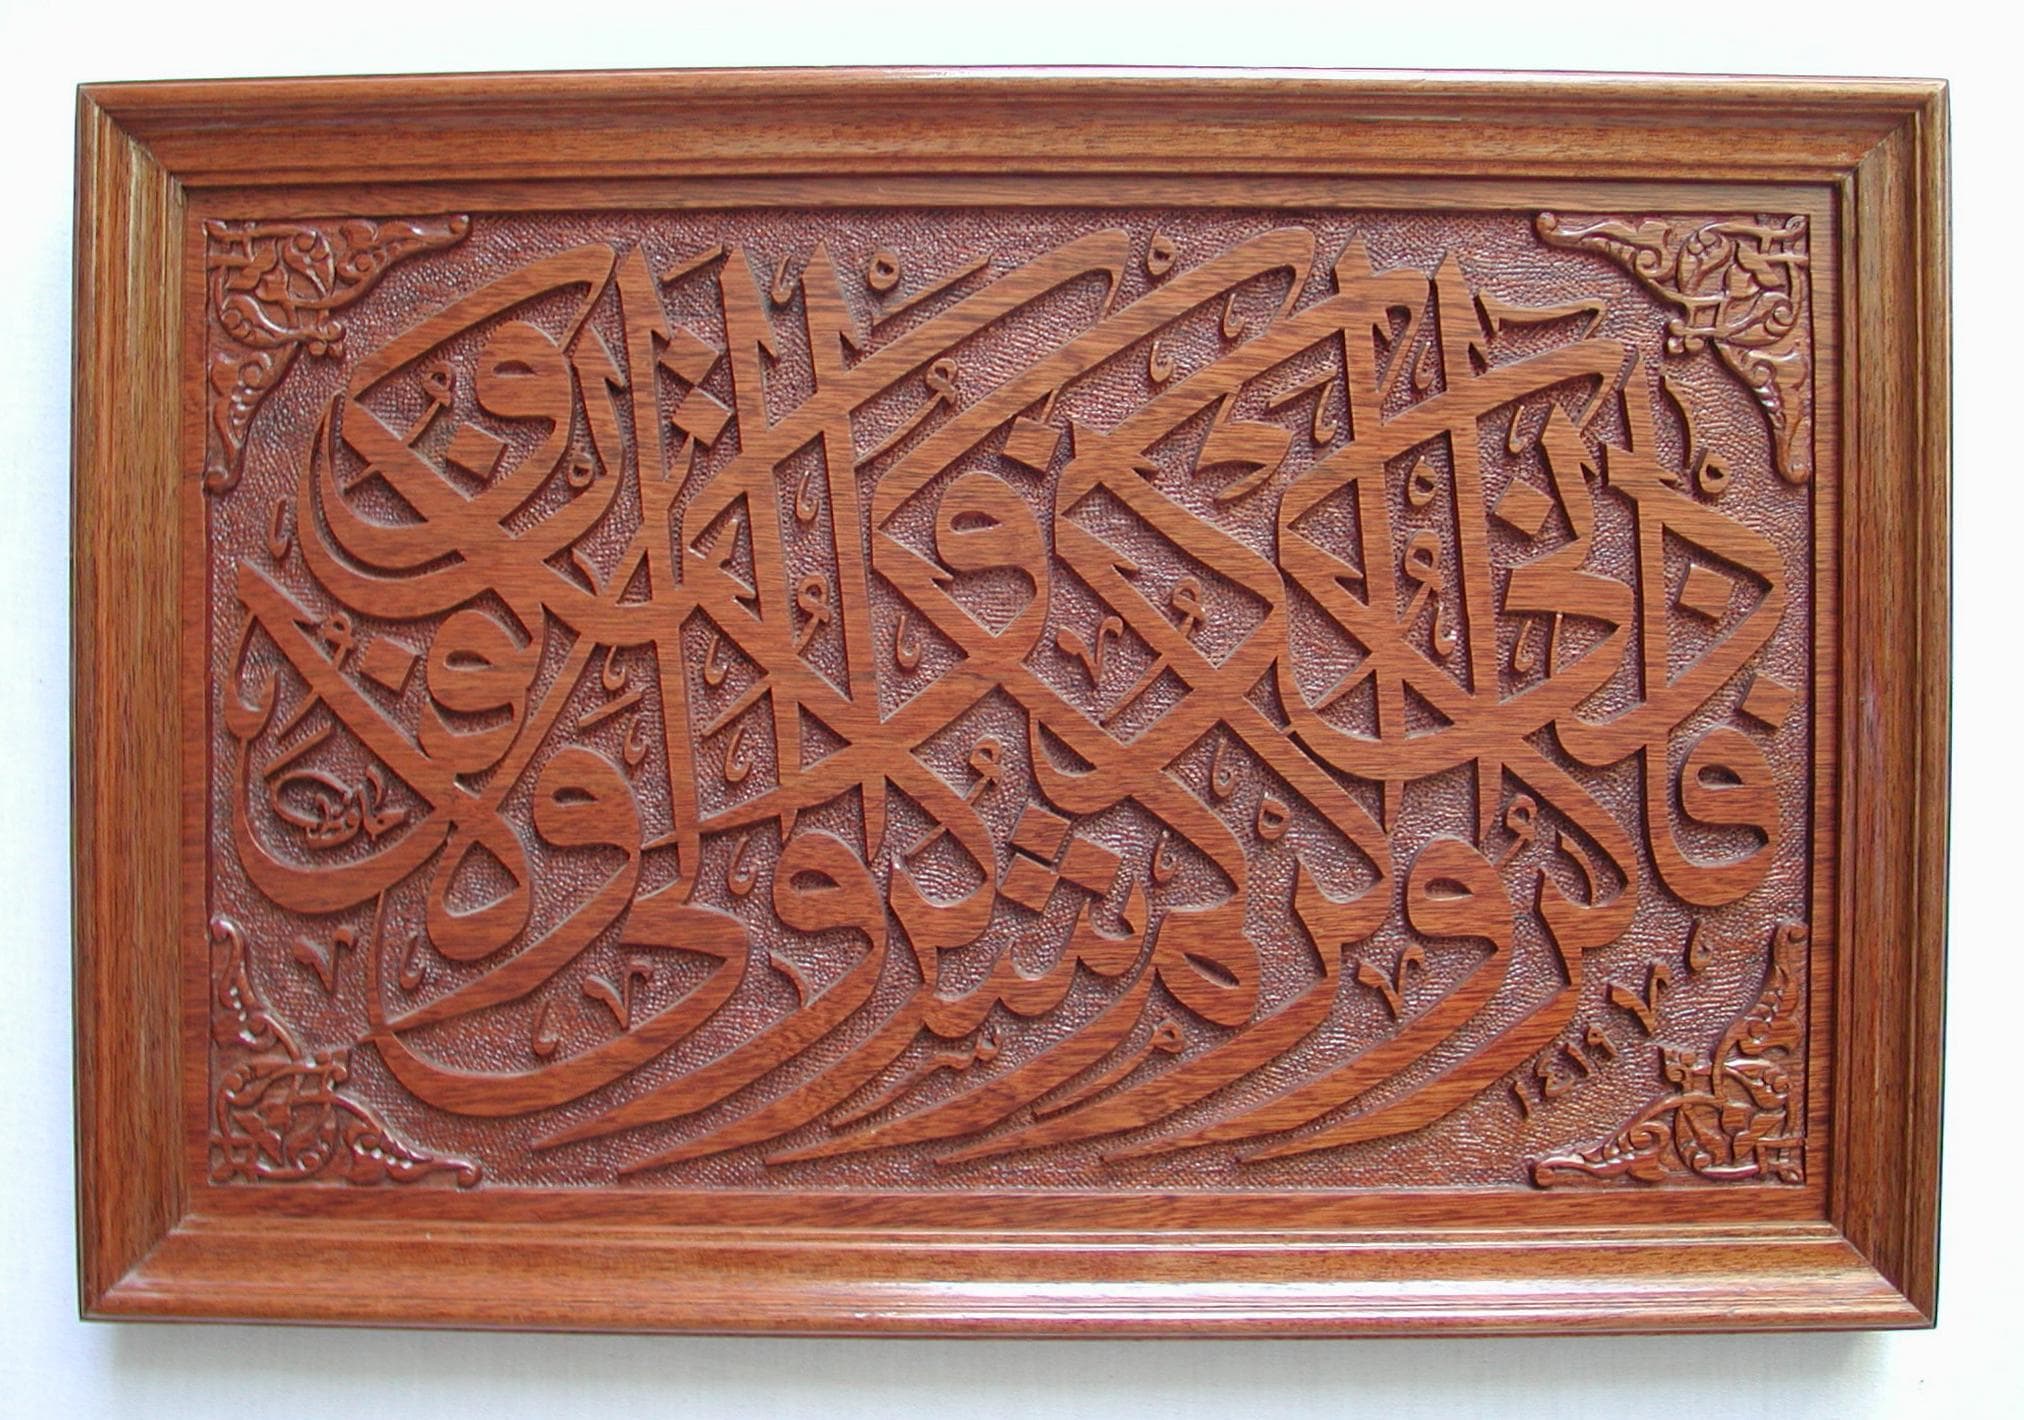 فاذكرونى أذكركم واشكروا لى ولا تكفرون
١٤١٩